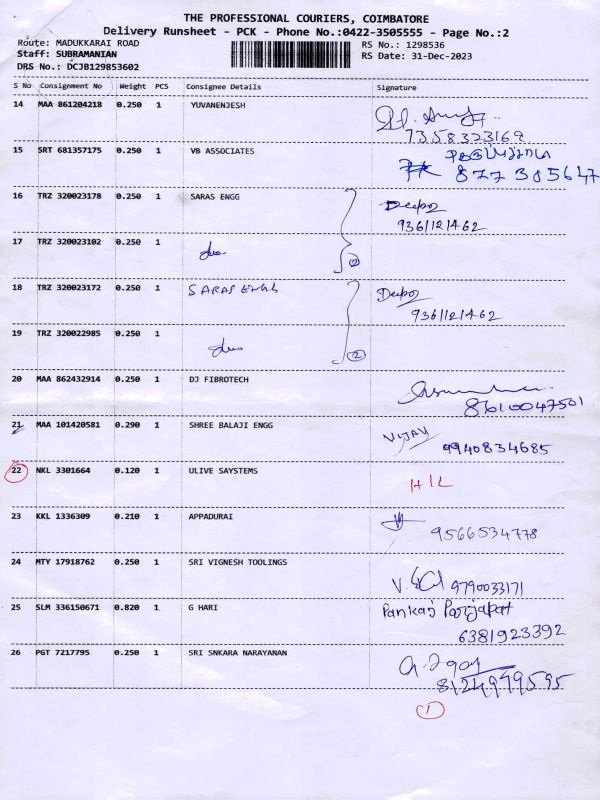 THE PROFESSIONAL COURIERS, COIMBATORE
Delivery Runsheet - PCK - Phone No.:0422-3505555 - Page No.:2
Route: MADUKKARAI ROAD RS No.: 1298536
Staff: SUBRAMANIAN RS Date: 31-Dec-2023
DRS No.: DCJB129853602
S No Consignment No Weight PCS Consignee Details Signature
14 MAA 861204218 0.250 1 YUVANENJESH
7358323169
15 SRT 681357175 0.250 1 VB ASSOCIATES
877 305647
16 TRZ 320023178 0.250 1 SARAS ENGG
9361121462
17 TRZ 320023102 0.250 1
2
18 TRZ 320023172 0.250 1 SARAS ENGG
9361121462
19 TRZ 320022985 0.250 1
2
20 MAA 862432914 0.250 1 DJ FIBROTECH
8610047501
21 MAA 101420581 0.290 1 SHREE BALAJI ENGG VIJAY
9940834685
22 NKL 3301664 0.120 1 ULIVE SAYSTEMS
HIL
23 KKL 1336309 0.210 1 APPADURAI
9566534778
24 MTY 17918762 0.250 1 SRI VIGNESH TOOLINGS
9790033171
25 SLM 336150671 0.820 1 G HARI Pankaj
6381923392
26 PGT 7217795 0.250 1 SRI SNKARA NARAYANAN
8124979595
1